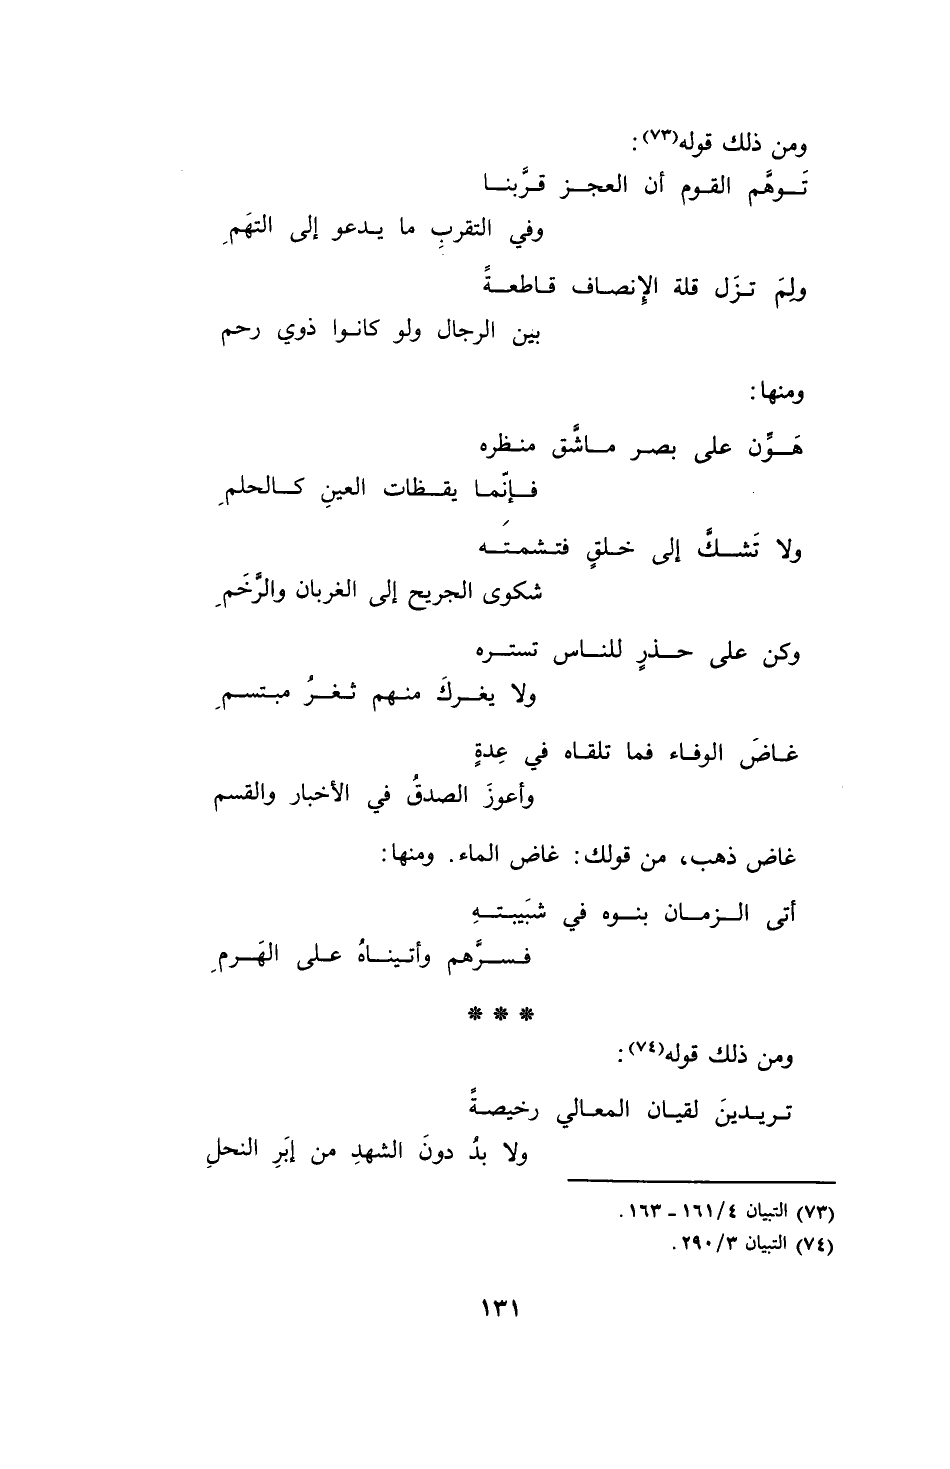 ومن ذلك قوله(٧٣):
تَـوهَّم القـوم أن العجـز قـرَّبنـا
وفي التقربِ ما يـدعو إلى التهَمِ
ولِمَ تـزَل قلة الإنصـاف قـاطعـةً
بين الرجال ولو كانـوا ذوي رحم
ومنها:
هَـوِّن على بصـر مـاشَّق منـظره
فـإنّمـا يقـظات العينِ كـالحلمِ
ولا تَشـكَّ إلى خـلقٍ فتـشمتَـه
شكوى الجريح إلى الغربان والرَّخَمِ
وكن على حـذرٍ للنـاس تستـره
ولا يغـركَ منـهم ثـغـرُ مبـتسـمِ
غـاضَ الوفـاء فما تلقـاه في عِدةٍ
وأعوزَ الصدقُ في الأخبار والقسم
غاض ذهب، من قولك: غاض الماء. ومنها:
أتى الـزمـان بنـوه في شبَيبتـهِ
فـسـرَّهم وأتـينـاهُ عـلى الهَـرمِ
* * *
ومن ذلك قوله(٧٤):
تـريـدينَ لقيـان المعـالي رخيصـةً
ولا بدُ دونَ الشهدِ من إبَرِ النحلِ
(٧٣) التبيان ٤/ ١٦١ - ١٦٣.
(٧٤) التبيان ٣/ ٢٩٠.
١٣١